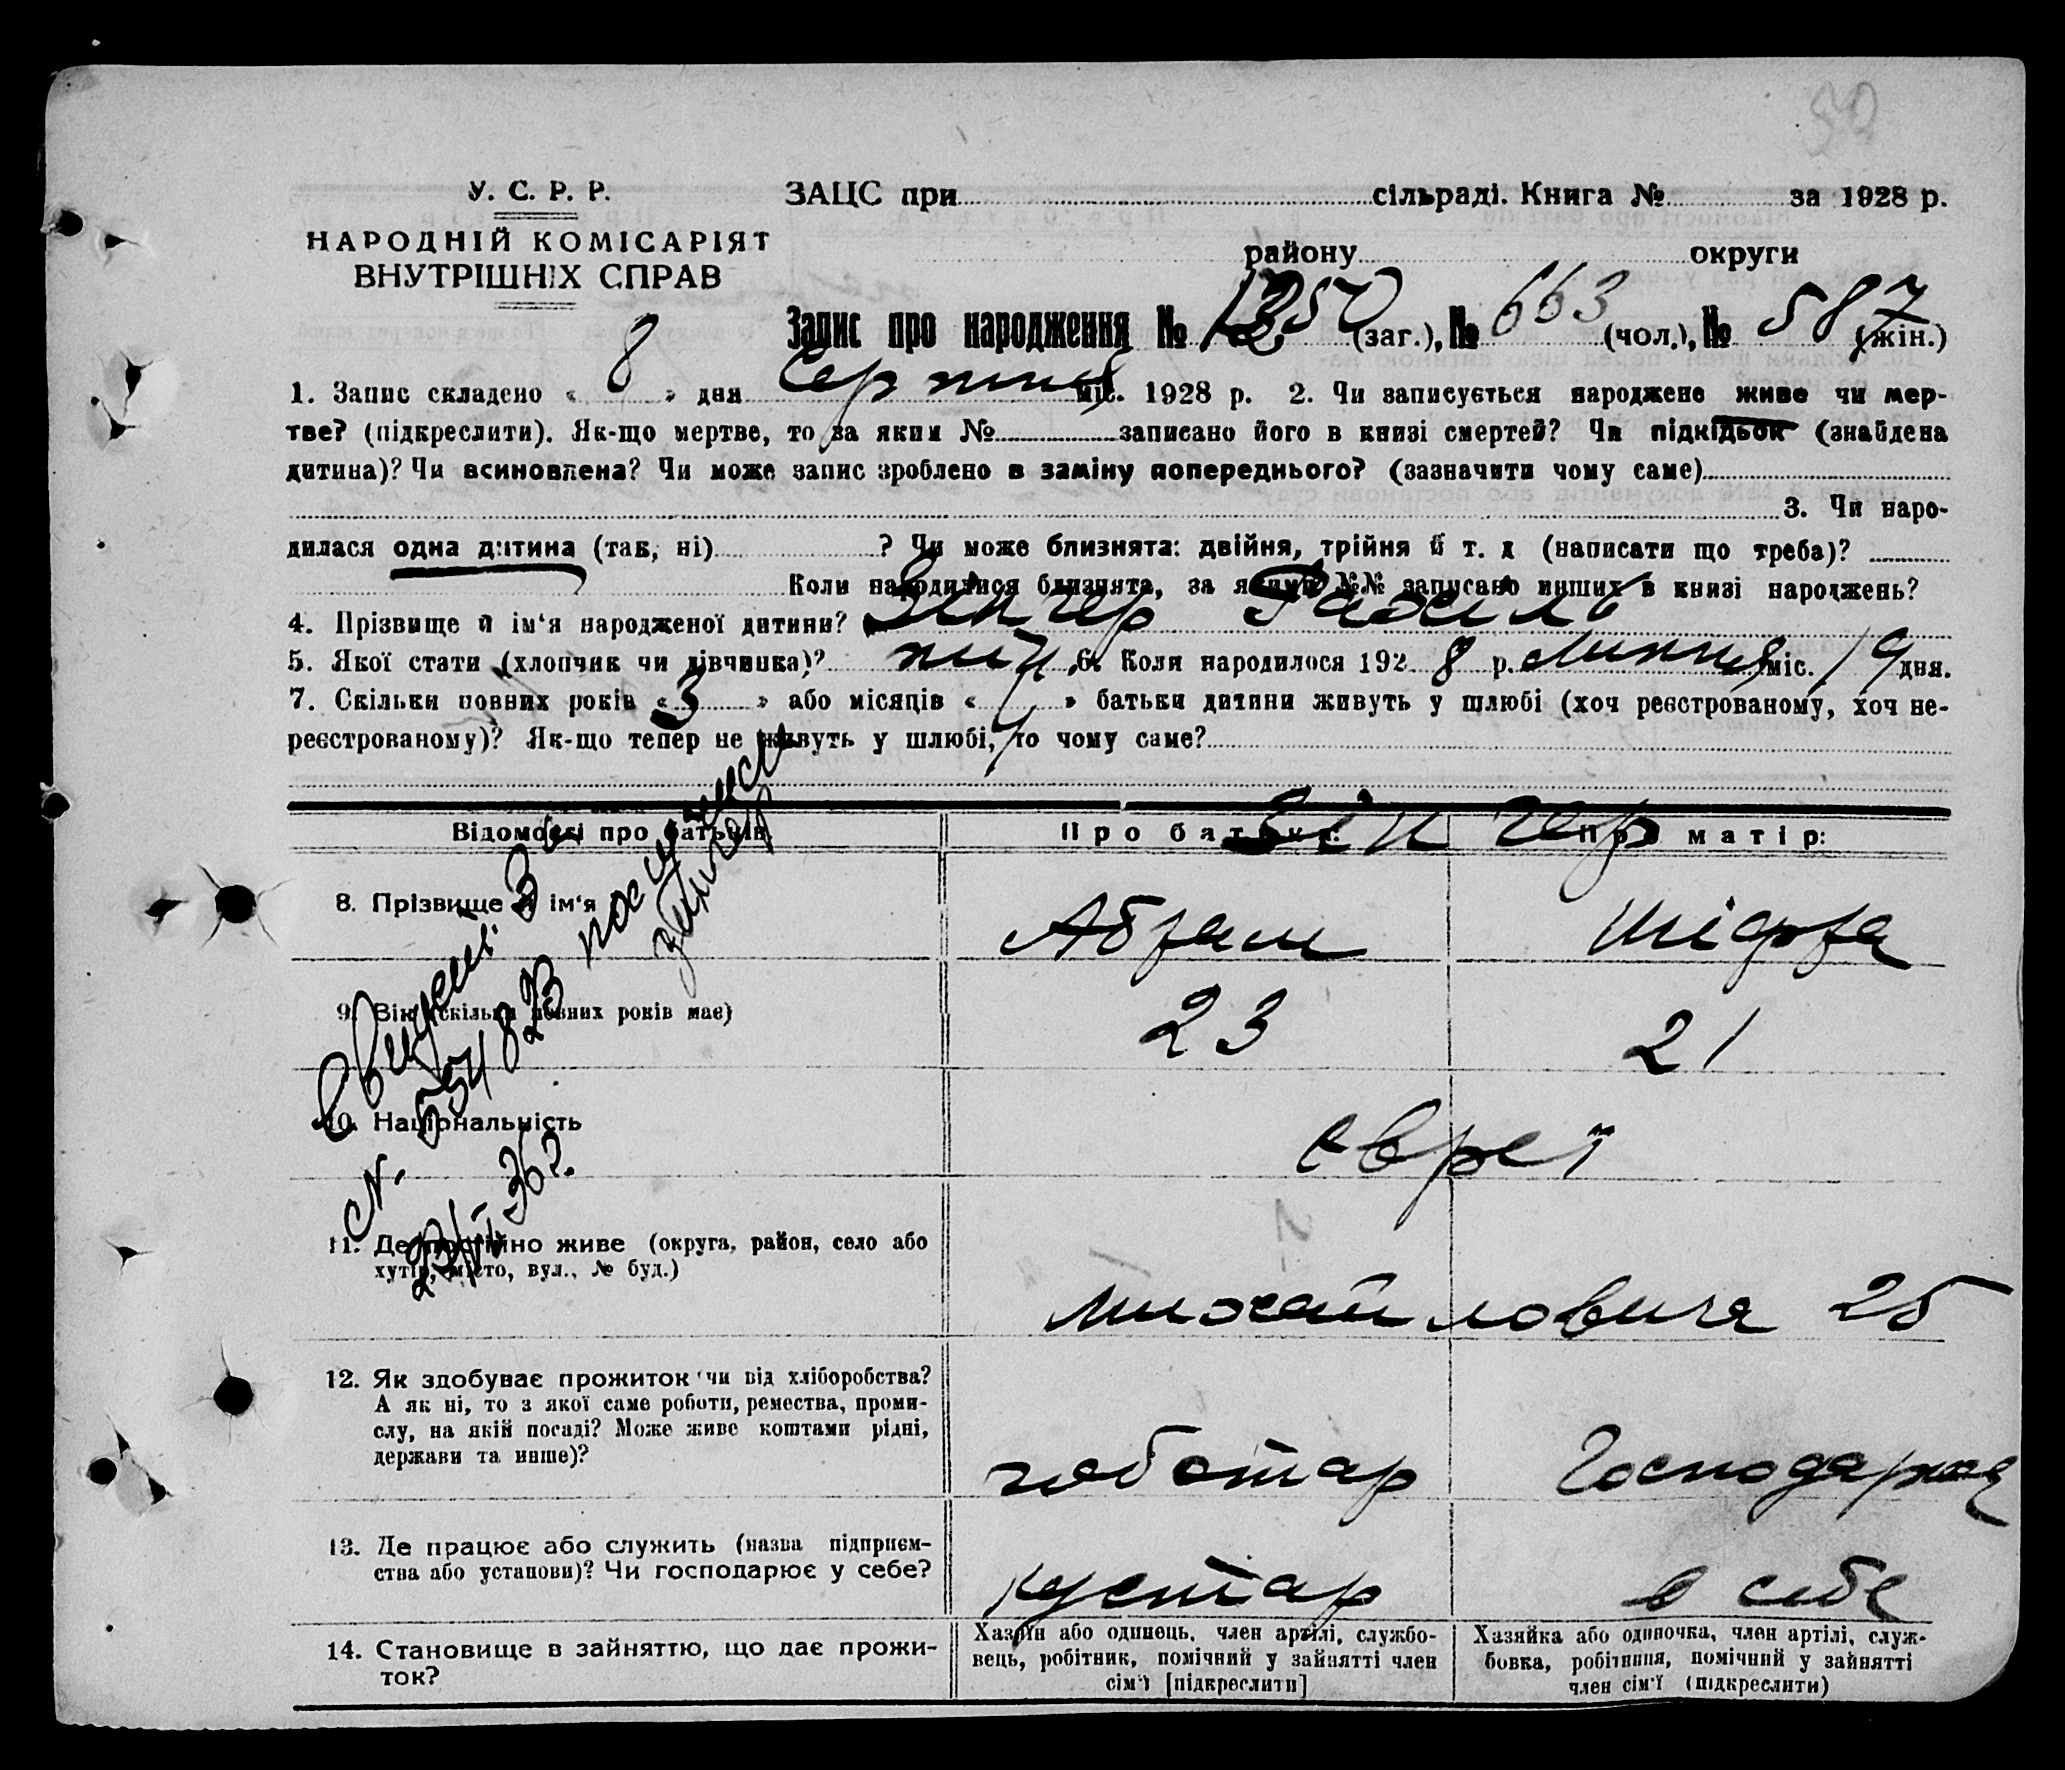 50
У. С. Р. Р.
НАРОДНІЙ КОМІСАРІЯТ
ВНУТРІШНІХ СПРАВ
ЗАЦС при сільраді. Книга № за 1928 р.
району округи
Запис про народження № 1250 (заг.), № 663 (чол.), № 587 (жін.)
1. Запис складено « 8 » дня Серпня міс. 1928 р. 2. Чи записується народжене живе чи мер-
тве? (підкреслити). Як-що мертве, то за яким № записано його в книзі смертей? Чи підкідьок (знайдена
дитина)? Чи всиновлена? Чи може запис зроблено в заміну попереднього? (зазначити чому саме)
3. Чи наро-
дилася одна дитина (так, ні) ? Чи може близнята: двійня, трійня й т. д (написати що треба)?
Коли народилися близнята, за якими №№ записано инших в книзі народжень?
4. Прізвище й ім'я народженої дитини? Зінгер Рахиль
5. Якої стати (хлопчик чи дівчинка)? жін 6. Коли народилося 192 8 р. Липня міс. 19 дня.
7. Скільки повних років « 3 » або місяців « » батьки дитини живуть у шлюбі (хоч реєстрованому, хоч не-
реєстрованому)? Як-що тепер не живуть у шлюбі, то чому саме?
Відомості про батьків Про батька: Про матір:
Зінгер
8. Прізвище й ім'я Абрам Шіфра
9. Вік (скільки повних років має) 23 21
10. Національність євреї
11. Де постійно живе (округа, район, село або
хутір, місто, вул., № буд.)
Михайловича 25
12. Як здобуває прожиток чи від хліборобства?
А як ні, то з якої саме роботи, ремества, проми-
слу, на якій посаді? Може живе коштами рідні,
держави та инше)?
чоботар Господарка
13. Де працює або служить (назва підприєм-
ства або установи)? Чи господарює у себе?
кустар в себе
14. Становище в зайняттю, що дає прожи-
ток?
Хазяїн або одинець, член артілі, службо-
вець, робітник, помічний у зайнятті член
сім'ї [підкреслити]
Хазяйка або одиночка, член артілі, служ-
бовка, робітниця, помічний у зайнятті
член сім'ї (підкреслити)